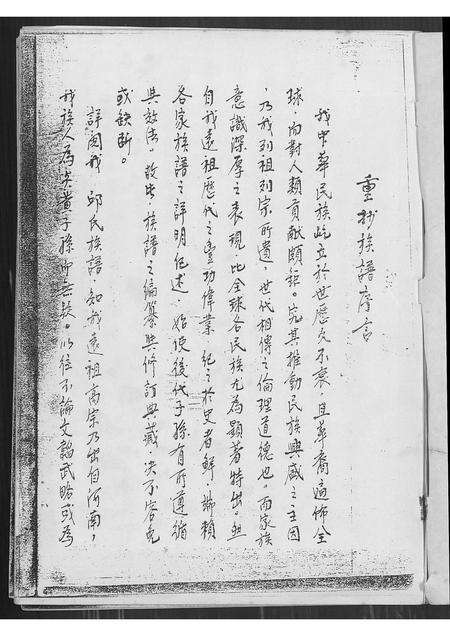 重抄族譜序言
我中華民族屹立於世歷久不衰，且華裔遍佈全
球，而對人類貢獻頗鉅。究其推動民族興盛之主因
，乃我列祖列宗所遺，世代相傳之倫理道德也，而家族
意識深厚之表現，比全球各民族尤為顯著特出，然
自我遠祖歷代之豐功偉業，紀之於史者鮮，端賴
各家族譜之詳明紀述，始使後代子孫有所遵循
與效法，故此族譜之編纂與修訂典藏，決不容免
或缺斷。
詳閱我 邱氏族譜，知我遠祖高宗乃出自河南，
我族人為炎黃子孫所無疑。以往不論文韜武略或為